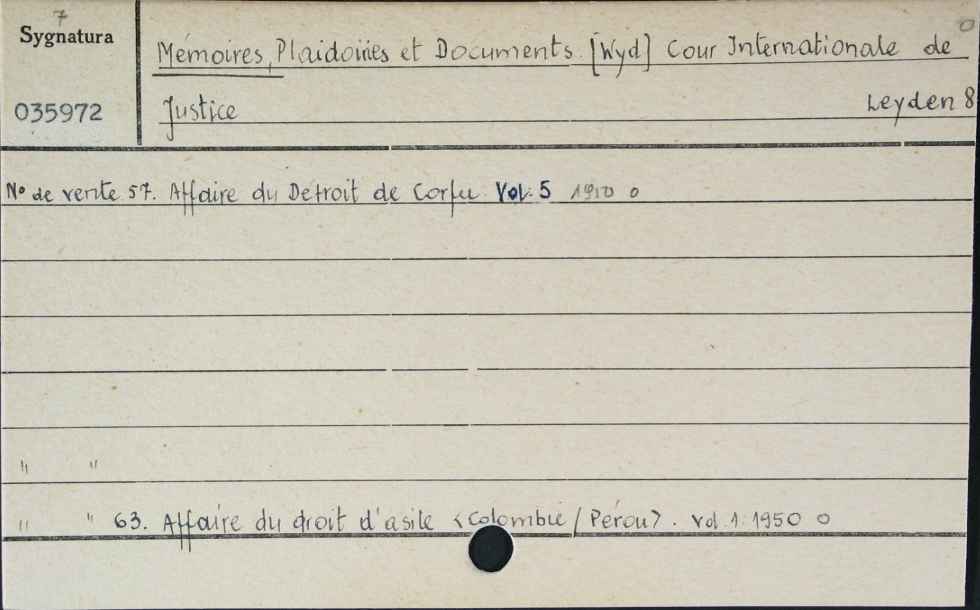 7
Sygnatura
0
Mémoires, Plaidoiries et Documents. [Wyd] Cour Internationale de
035972
Justice
Leyden 8
Nº de vente 57. Affaire du Détroit de Corfu. Vol. 5 1910 0
" "
" " 63. Affaire du droit d'asile <Colombie / Pérou>. vol. 1. 1950 0